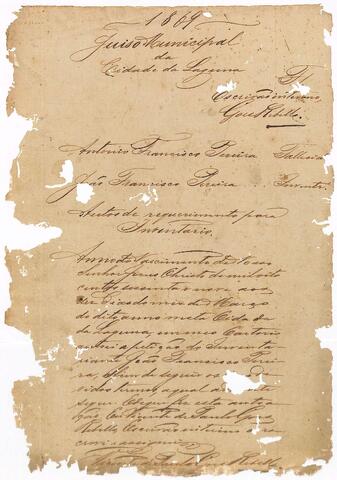 1869
Juiso Municipal
da
Cidade da Laguna
Fl
Escrivão interino
Goes Rebello
Antonio Francisco Pereira Fallecido
João Francisco Pereira Inventr.
Autos de requerimento para
Inventario.
Anno do Nascimento de Nosso
Senhor Jesus Christo de mil oito
centos sessenta e nove aos
dias do mes de Março
do dito anno nesta Cidade
da Laguna, em meu Cartorio
autoei a petição do Inventa
riante João Francisco Perei
ra, afim de seguir os
vidos termos, a qual
segue. E eu Vicente de Paula Goes
Rebello, Escrivão interino o es
crevi e assignei.
Vicente de Paula Goes Rebello